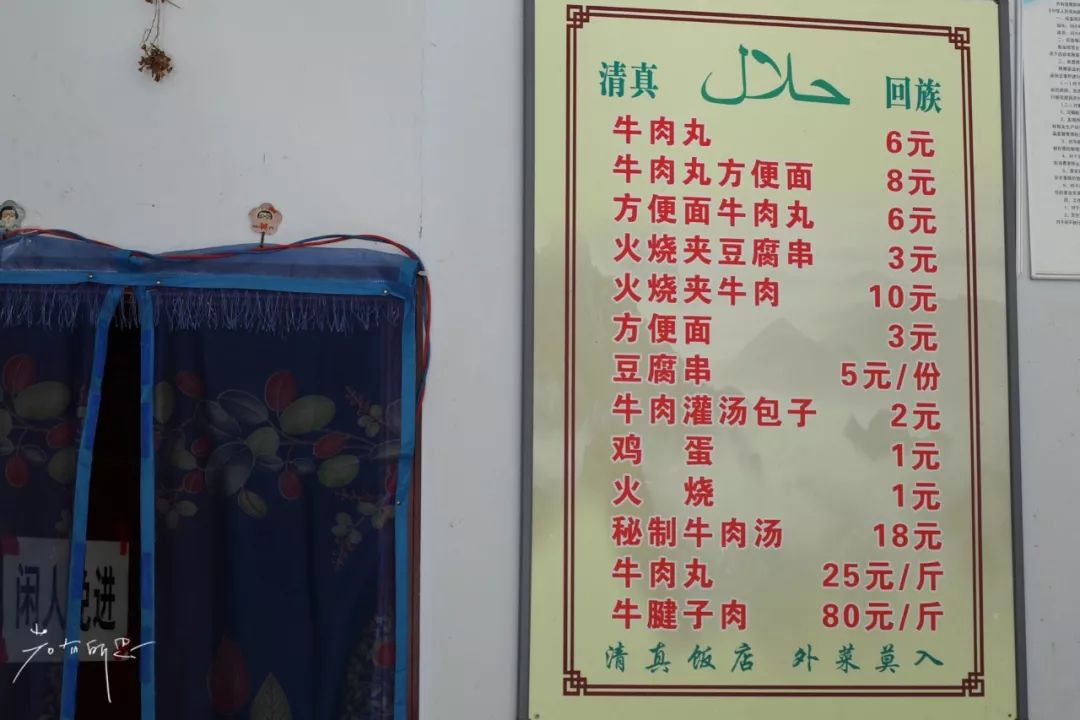 清真 حلال 回族
牛肉丸 6元
牛肉丸方便面 8元
方便面牛肉丸 6元
火烧夹豆腐串 3元
火烧夹牛肉 10元
方便面 3元
豆腐串 5元/份
牛肉灌汤包子 2元
鸡 蛋 1元
火 烧 1元
秘制牛肉汤 18元
牛肉丸 25元/斤
牛腱子肉 80元/斤
清真饭店 外菜莫入
闲人免进
若有所思